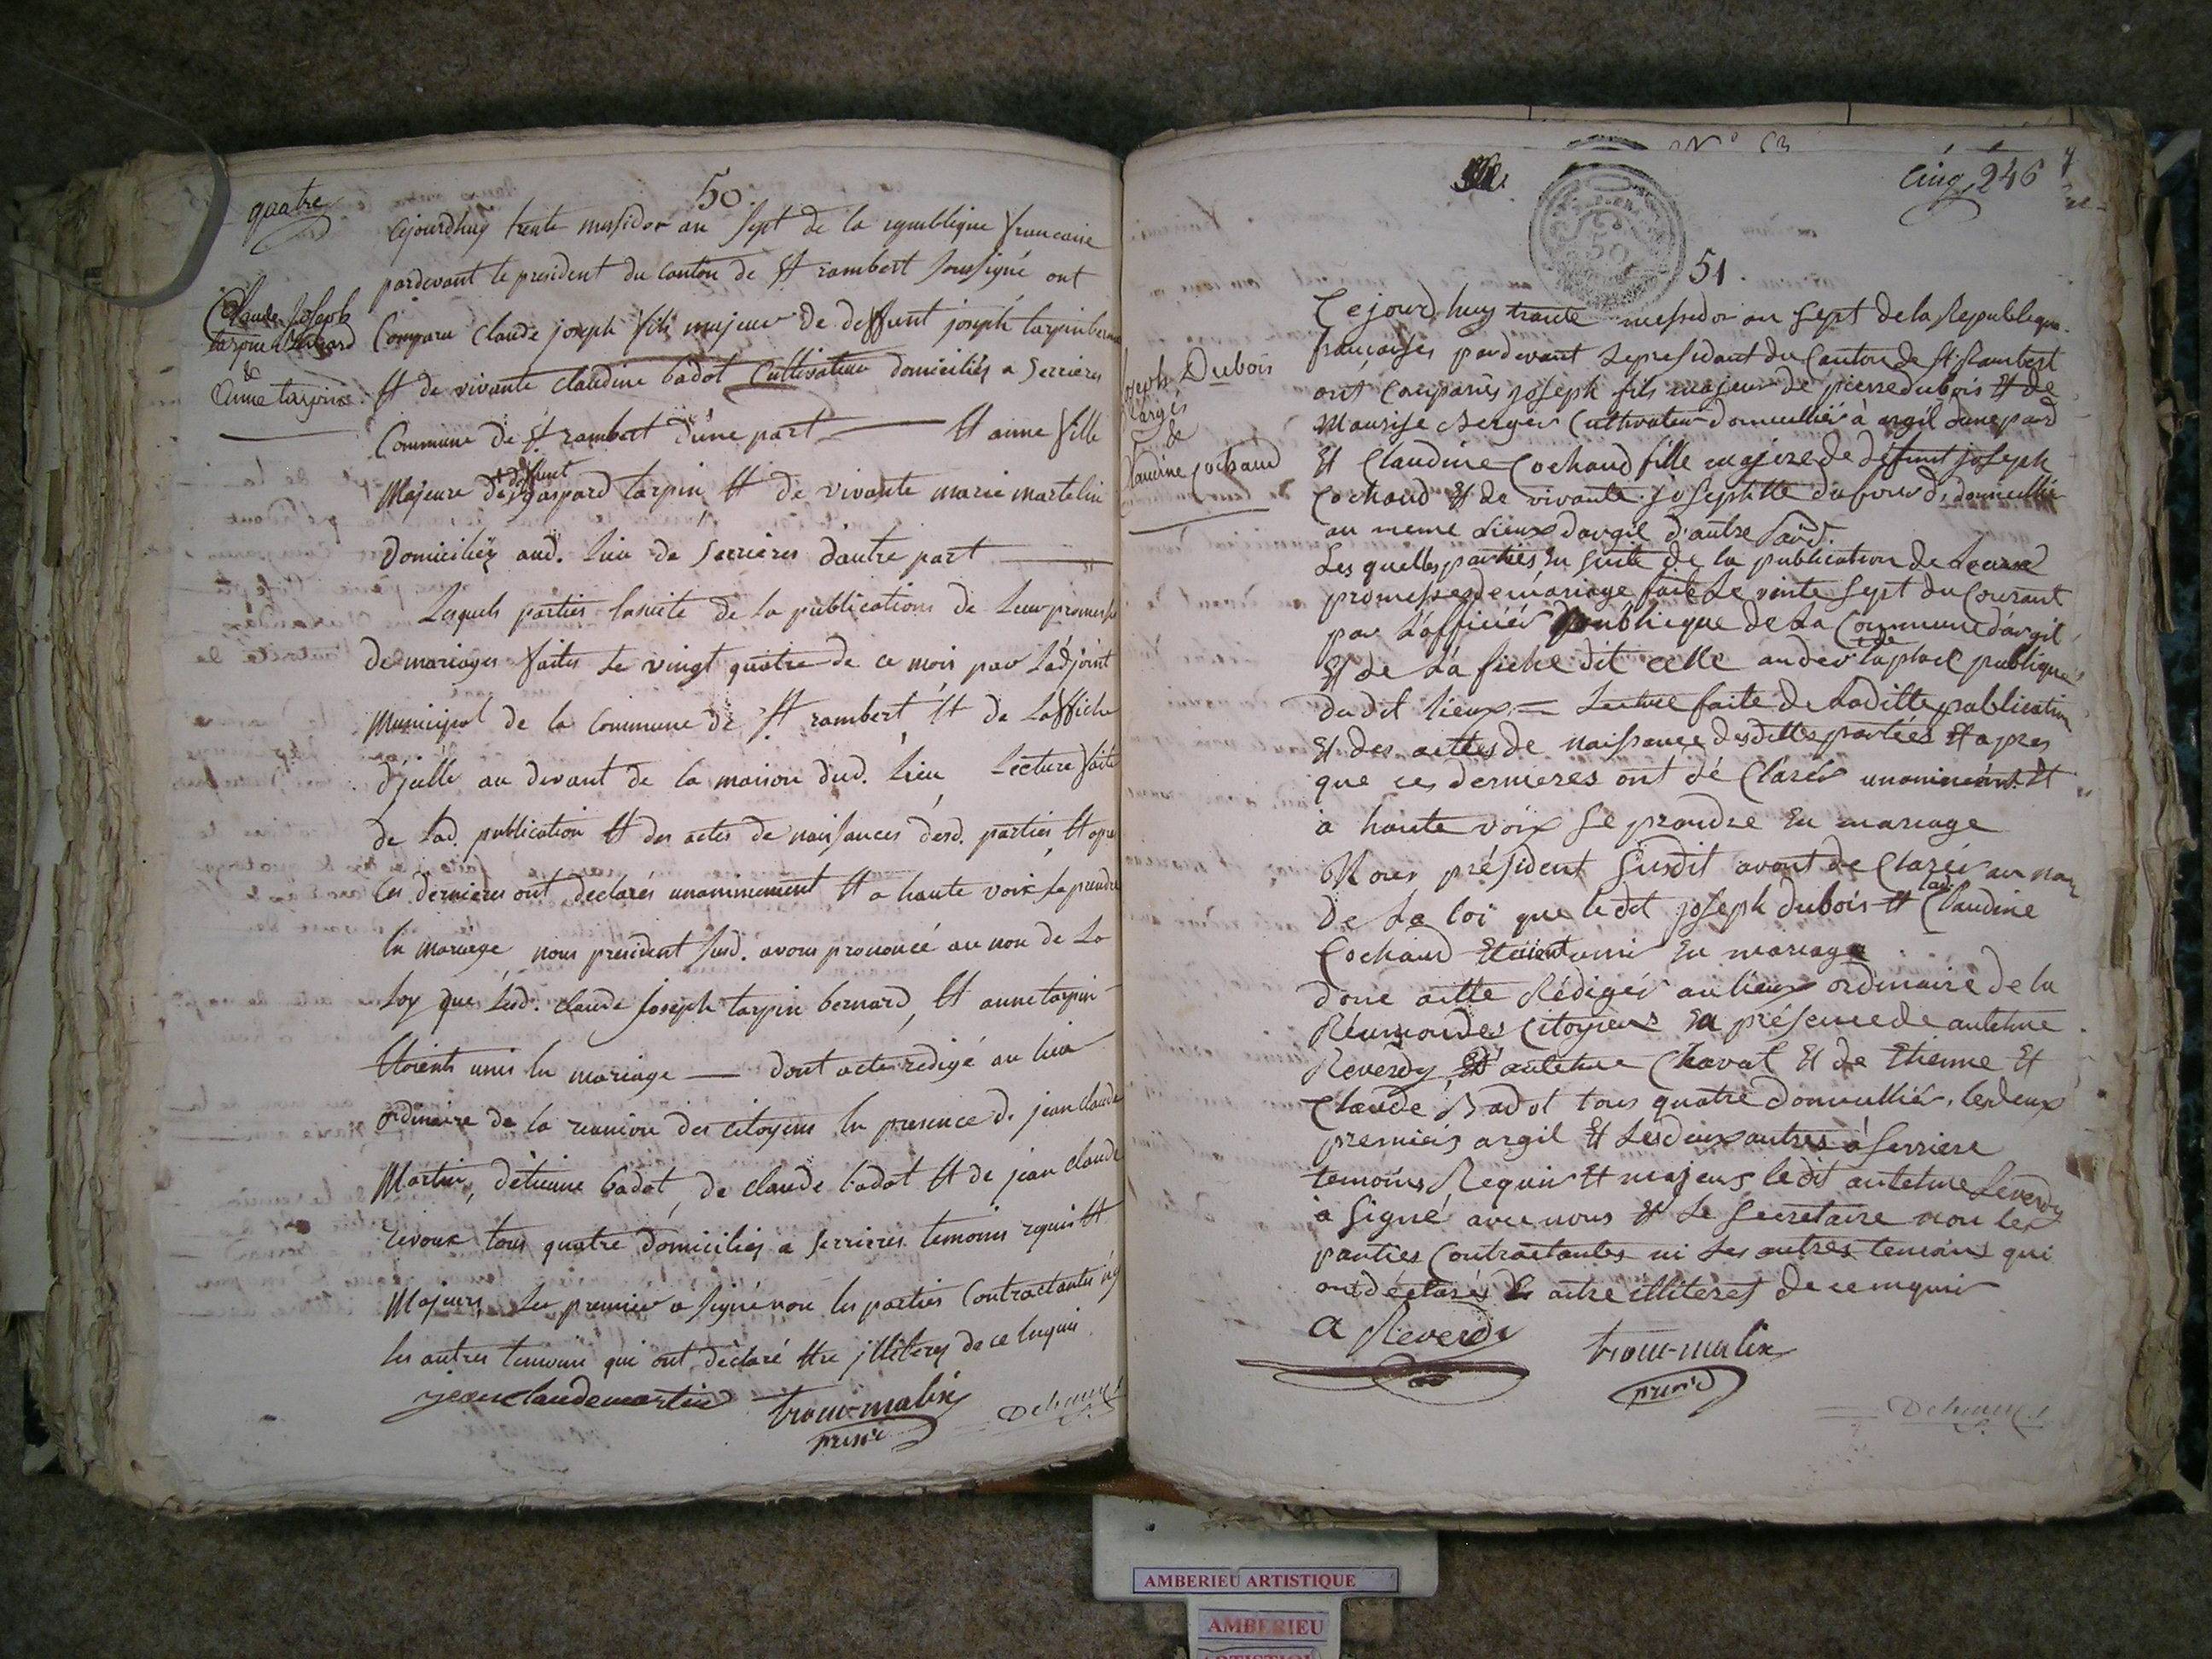 quatre
50.
Cejourdhuy trente messidor an sept de la republique francaise
pardevant le president du canton de St rambert soussigné ont
Comparu claude joseph fils majeur de deffunt joseph tarpin bernard
Et de vivante claudine badot Cultivateur domiciliés a serrieres
Commune de St rambert d'une part Et anne fille
Majeure de deffunt gaspard tarpin Et de vivante marie martelin
domiciliéz aud. lieu de serrieres dautre part
Lesquels parties ensuite de la publications de leur promesse
de mariages faites le vingt quatre de ce mois par Ladjoint
Municipal de la commune de St rambert, Et de Laffiche
d'jcelle au devant de la maison dud. lieu Lecture faite
de lad. publication Et des actes de naissances desd. parties, Et apres
les dernieres ont declarés unanimement Et a haute voix se prendre
En mariage nous president susd. avons prononcé au non de La
Loy que lesd. claude joseph tarpin bernard, Et anne tarpin
Etoients unis En mariage dont acte redigé au lieu
ordinaire de la reunion des citoyens En presence de jean claude
Martin, d'etienne badot, de claude badot Et de jean claude
revoux tous quatre domiciliés a serrieres temoins requis Et
Majeurs, Le premier a signé non les parties Contractantes ny
les autres temoins qui ont declaré Etre jlliterez de ce Enquis
jean claude martin
trocu-malix
presid
Claude Joseph
tarpin Bernard
&
Anne tarpin
N° 63
Cinq, 246
50
51.
Cejourd,huy trante messidor an sept de la Republique
francaises pardevant Lepresidant du Canton de St Rambert
ont comparus joseph fils majeur de pierre dubois Et de
Maurise Berger Cultivateur domicilliér à argil dune pard
Et Claudine Cochaud fille majeure de defunt joseph
Cochaud Et de vivante josephtte dufour d, domicillié
au meme Lieux dargil d'autre pard.
Les quelles parties En suite de la publication de Leurs
promesses de mariage faite Le vinte sept du Courant
par Lofficiér publique de La Commune dargil
Et de La fiche dit celle au dev de la place publique
du dit lieux = Lecture faite de Laditte publication
Et des acttes de naissance desdittes parties Et apres
que ces dernieres ont dé Clarér unanimemt Et
à haute voix se prandre En mariage
Nous président susdit avont de Clarér au nom
de La loi que le dit joseph dubois Et lad. Claudine
Cochaud Etoient unis En mariage
donc actte Rédigér au lieux ordinaire de la
Réunion des Citoyens En présence de antelme
Reverdy, Et antelme Chavat Et de Etienne Et
Claude Badot tous quatre domicilliér, les deux
premiérs argil Et Les deux autres à serriere
temoins Requis Et majeurs le dit antelme Reverdy
à signé avec nous Et Le secretaire non les
parties Contractantes ni Les autres temoins qui
ont déclarés aitre illiteres de ce enquis
a Reverdi
trocu-malix
presid
Joseph Dubois
dargis
&
Claudine Cochaud
AMBERIEU ARTISTIQUE
AMBERIEU
ARTISTIQUE